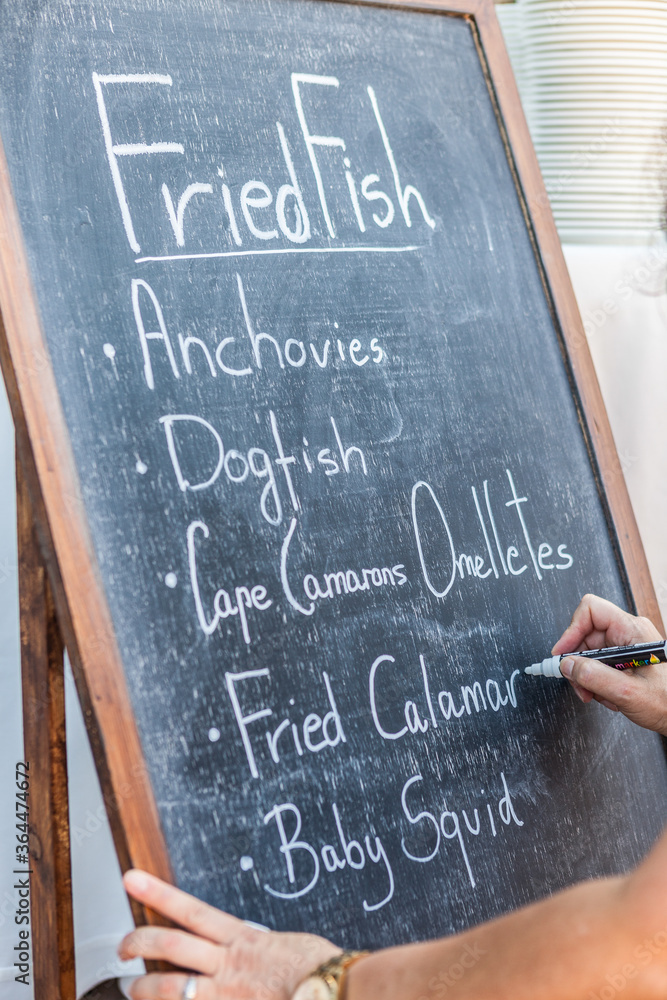 Fried Fish
• Anchovies
• Dogfish
• Cape Camarons Omelletes
• Fried Calamar
• Baby Squid
marker
Adobe Stock | #364474672